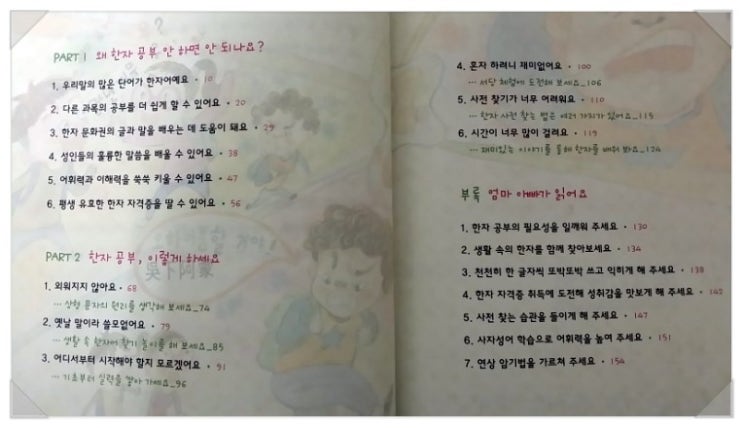 PART 1 왜 한자 공부 안 하면 안 되나요?
1. 우리말의 많은 단어가 한자어예요 • 10
2. 다른 과목의 공부를 더 쉽게 할 수 있어요 • 20
3. 한자 문화권의 글과 말을 배우는 데 도움이 돼요 • 29
4. 성인들의 훌륭한 말씀을 배울 수 있어요 • 38
5. 어휘력과 이해력을 쑥쑥 키울 수 있어요 • 47
6. 평생 유효한 한자 자격증을 딸 수 있어요 • 56
PART 2 한자 공부, 이렇게 하세요
1. 외워지지 않아요 • 68
… 상형 문자의 원리를 생각해 보세요_74
2. 옛날 말이라 쓸모없어요 • 79
… 생활 속 한자어 찾기 놀이를 해 보세요_85
3. 어디서부터 시작해야 할지 모르겠어요 • 91
… 기초부터 실력을 쌓아 가세요_96
4. 혼자 하려니 재미없어요 • 100
… 서당 체험에 도전해 보세요_106
5. 사전 찾기가 너무 어려워요 • 110
… 한자 사전 찾는 법은 여러 가지가 있어요_115
6. 시간이 너무 많이 걸려요 • 119
… 재미있는 이야기를 통해 한자를 배워 봐요_124
부록 엄마 아빠가 읽어요
1. 한자 공부의 필요성을 일깨워 주세요 • 130
2. 생활 속의 한자를 함께 찾아보세요 • 134
3. 천천히 한 글자씩 또박또박 쓰고 익히게 해 주세요 • 138
4. 한자 자격증 취득에 도전해 성취감을 맛보게 해 주세요 • 142
5. 사전 찾는 습관을 들이게 해 주세요 • 147
6. 사자성어 학습으로 어휘력을 높여 주세요 • 151
7. 연상 암기법을 가르쳐 주세요 • 154